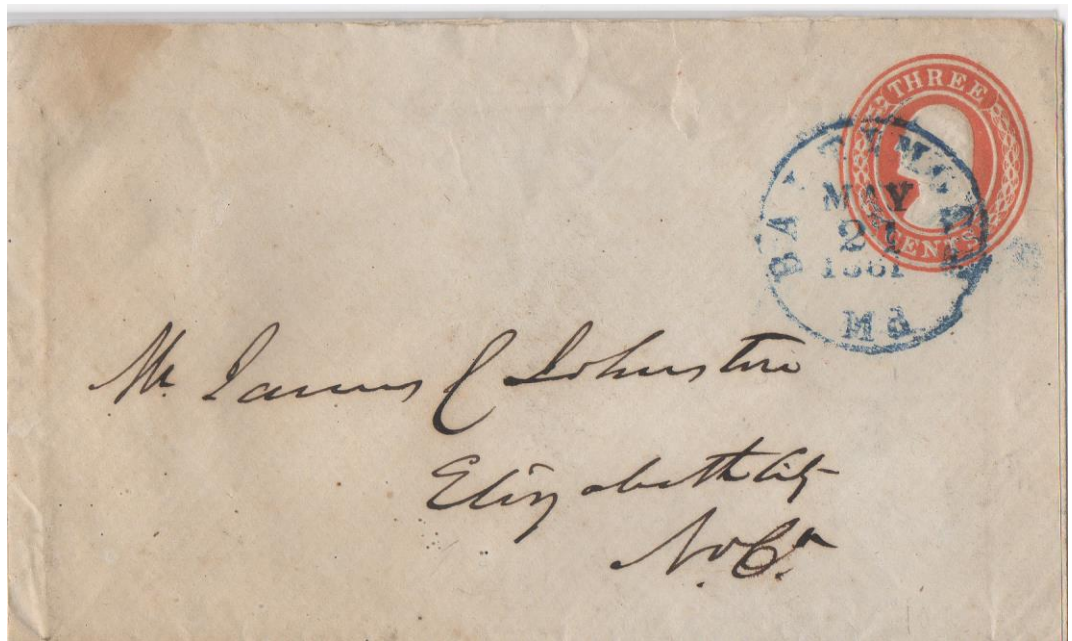 THREE
CENTS
BALTIMORE
MAY
21
1861
Md
Mr. James C Johnston
Elizabeth City
No. Ca